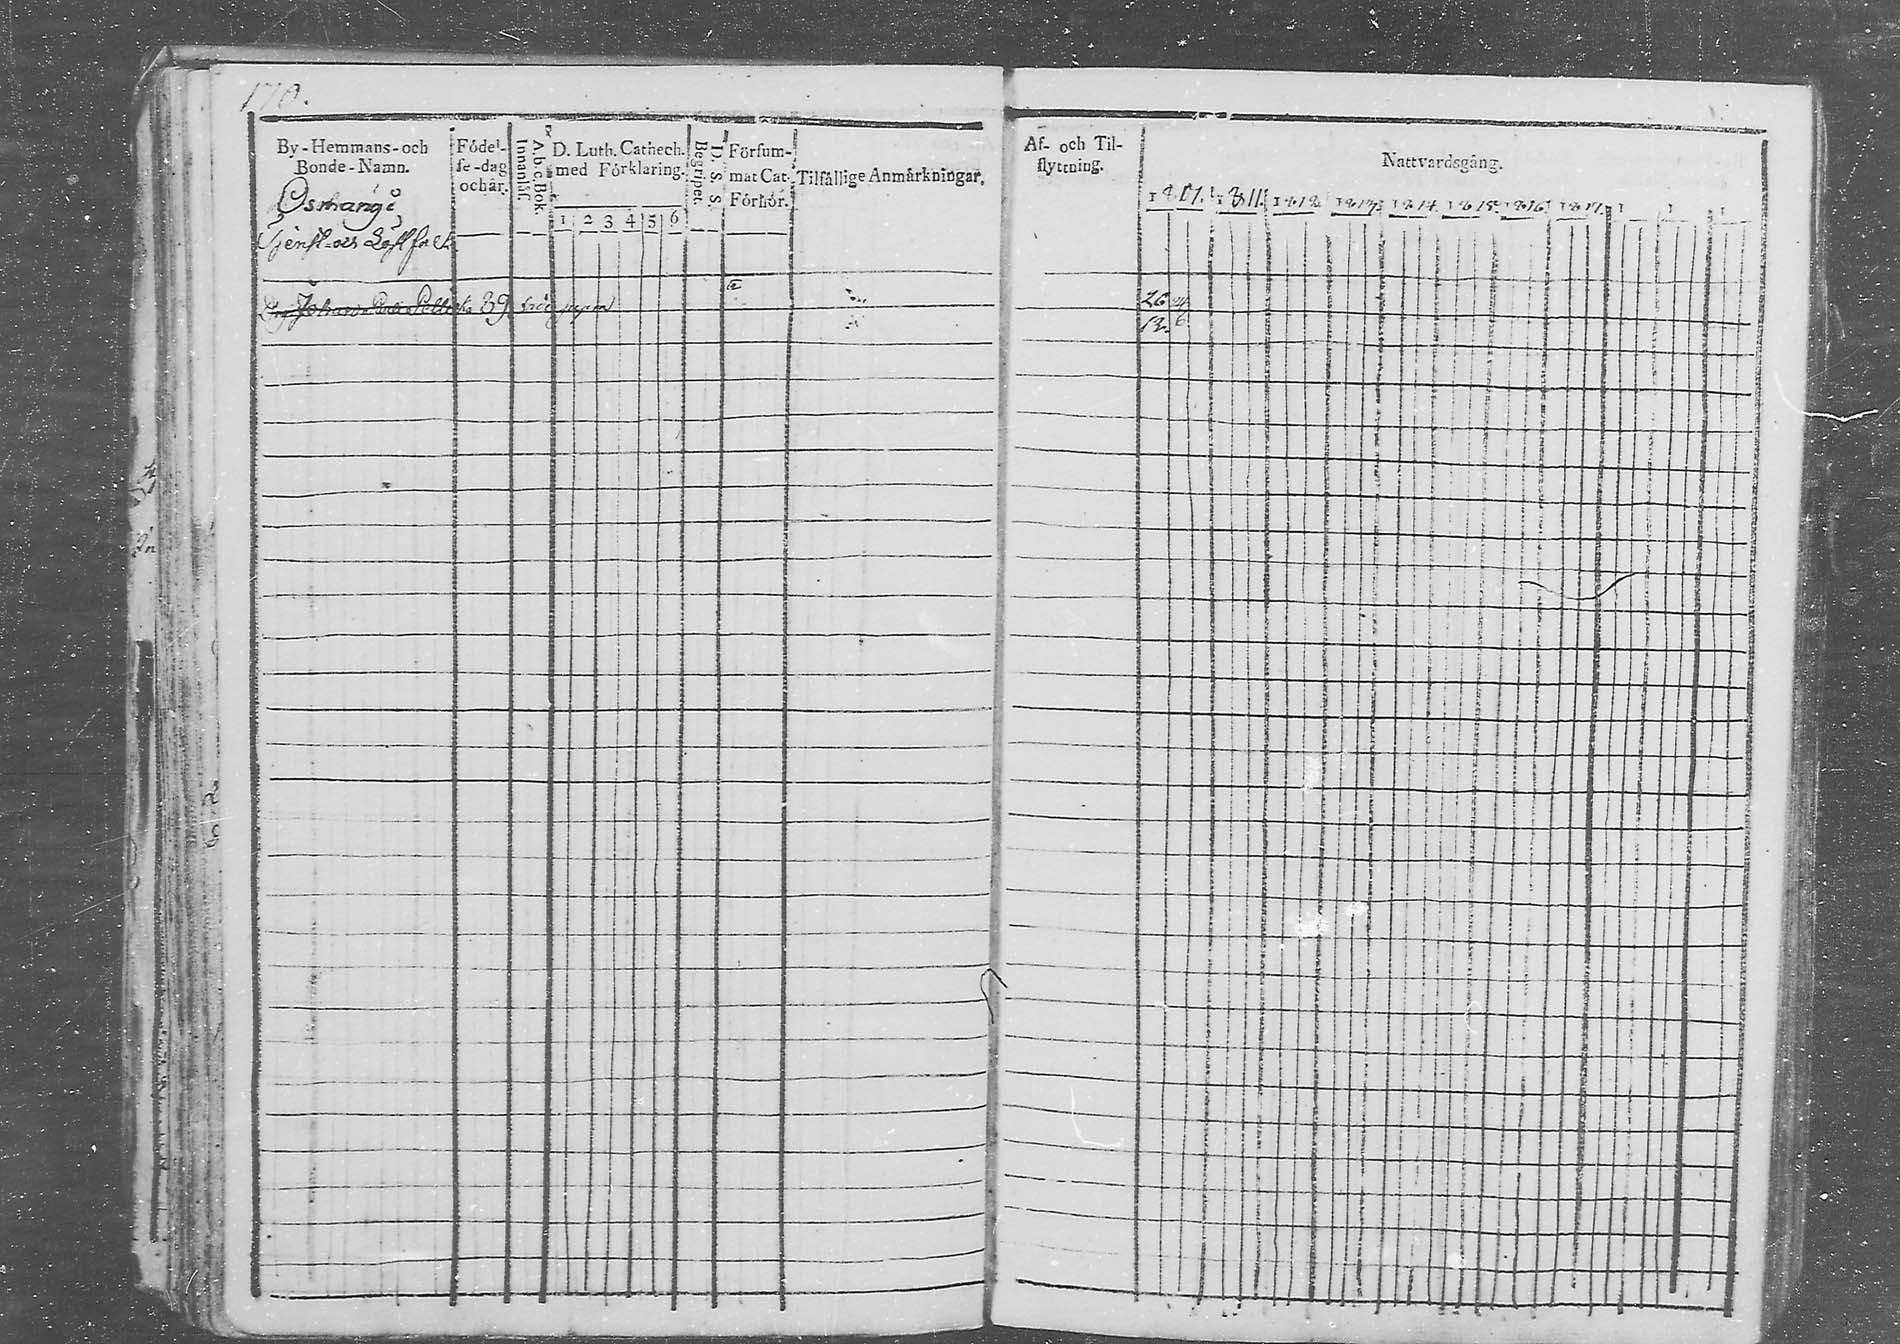 170.
By-Hemmans- och
Bonde-Namn.
Födel-
se-dag
och år.
A.b.c. Bok.
Innanläs.
D. Luth. Cathech.
med Förklaring.
1 2 3 4 5 6
D. S. S.
Begriper.
Försum-
mat Cat.
Förhör.
Tilfällige Anmärkningar.
Tjenst- och Löst folk
Johan 89
Af- och Til-
flyttning.
Nattvardsgång.
1811. 1812. 1813. 1814. 1815. 1816. 1817. 1 1 1
26